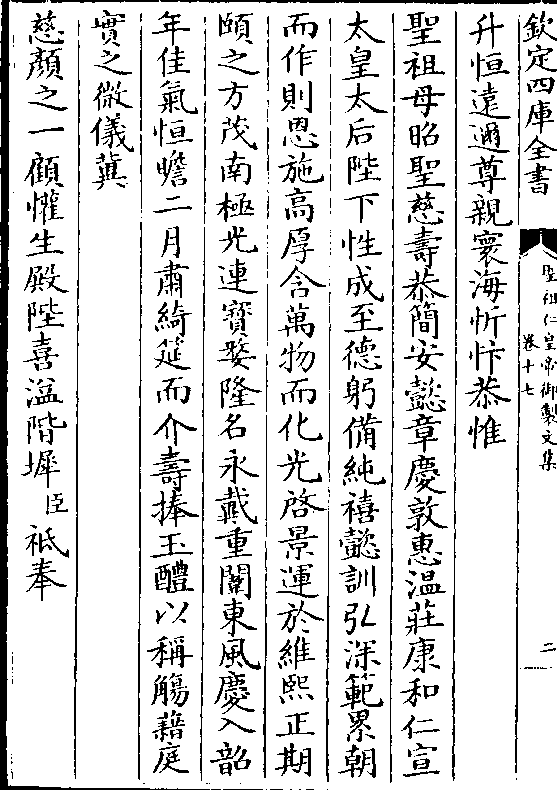 欽定四庫全書
聖祖仁皇帝御製文集
卷十七
二
升恒遠邇尊親寰海忻忭恭惟
聖祖母昭聖慈壽恭簡安懿章慶敦惠溫莊康和仁宣
太皇太后陛下性成至德躬備純禧懿訓弘深範累朝
而作則恩施高厚含萬物而化光啓景運於維熙正期
頤之方茂南極光連寶婺隆名永戴重闈東風慶入韶
年佳氣恒瞻二月肅綺筵而介壽捧玉醴以稱觴藉庭
實之微儀冀
慈顏之一顧懽生殿陛喜溢階墀臣祗奉